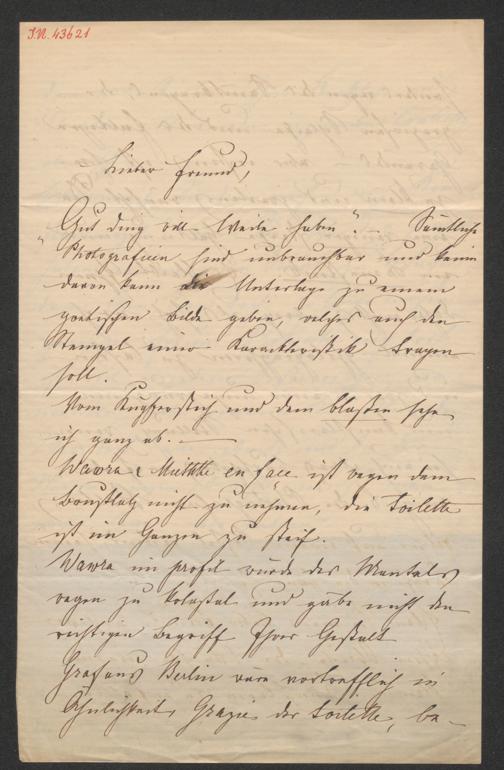 I.N. 43621
Lieber Freund,
"Gut ding will Weile haben". – Sämtliche
Photografieen sind unbrauchbar und keine
davon kann die Unterlage zu einem
poetischen Bilde geben, welches auch den
Stempel einer Karackteristik tragen
soll.
Vom Kupferstich und dem blasten sehe
ich ganz ab. —
Wawra & en face ist wegen dem
Brustlatz nicht zu nehmen, die Toilette
ist im Ganzen zu steif.
Wawra im profil würde des Mantels
wegen zu kolossal und gäbe nicht den
richtigen Begriff Ihrer Gestalt
Berlin wäre vortrefflich in
Ähnlichkeit, Grazie der Toilette, be-